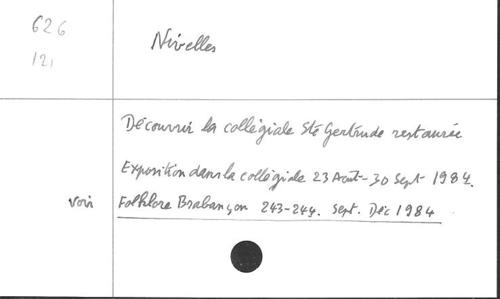 626
121
Nivelles
Découvrir la collégiale Ste Gertrude restaurée
Exposition dans la collégiale 23 Août - 30 Sept 1984.
voir Folklore Brabançon 243-244. Sept. Déc 1984